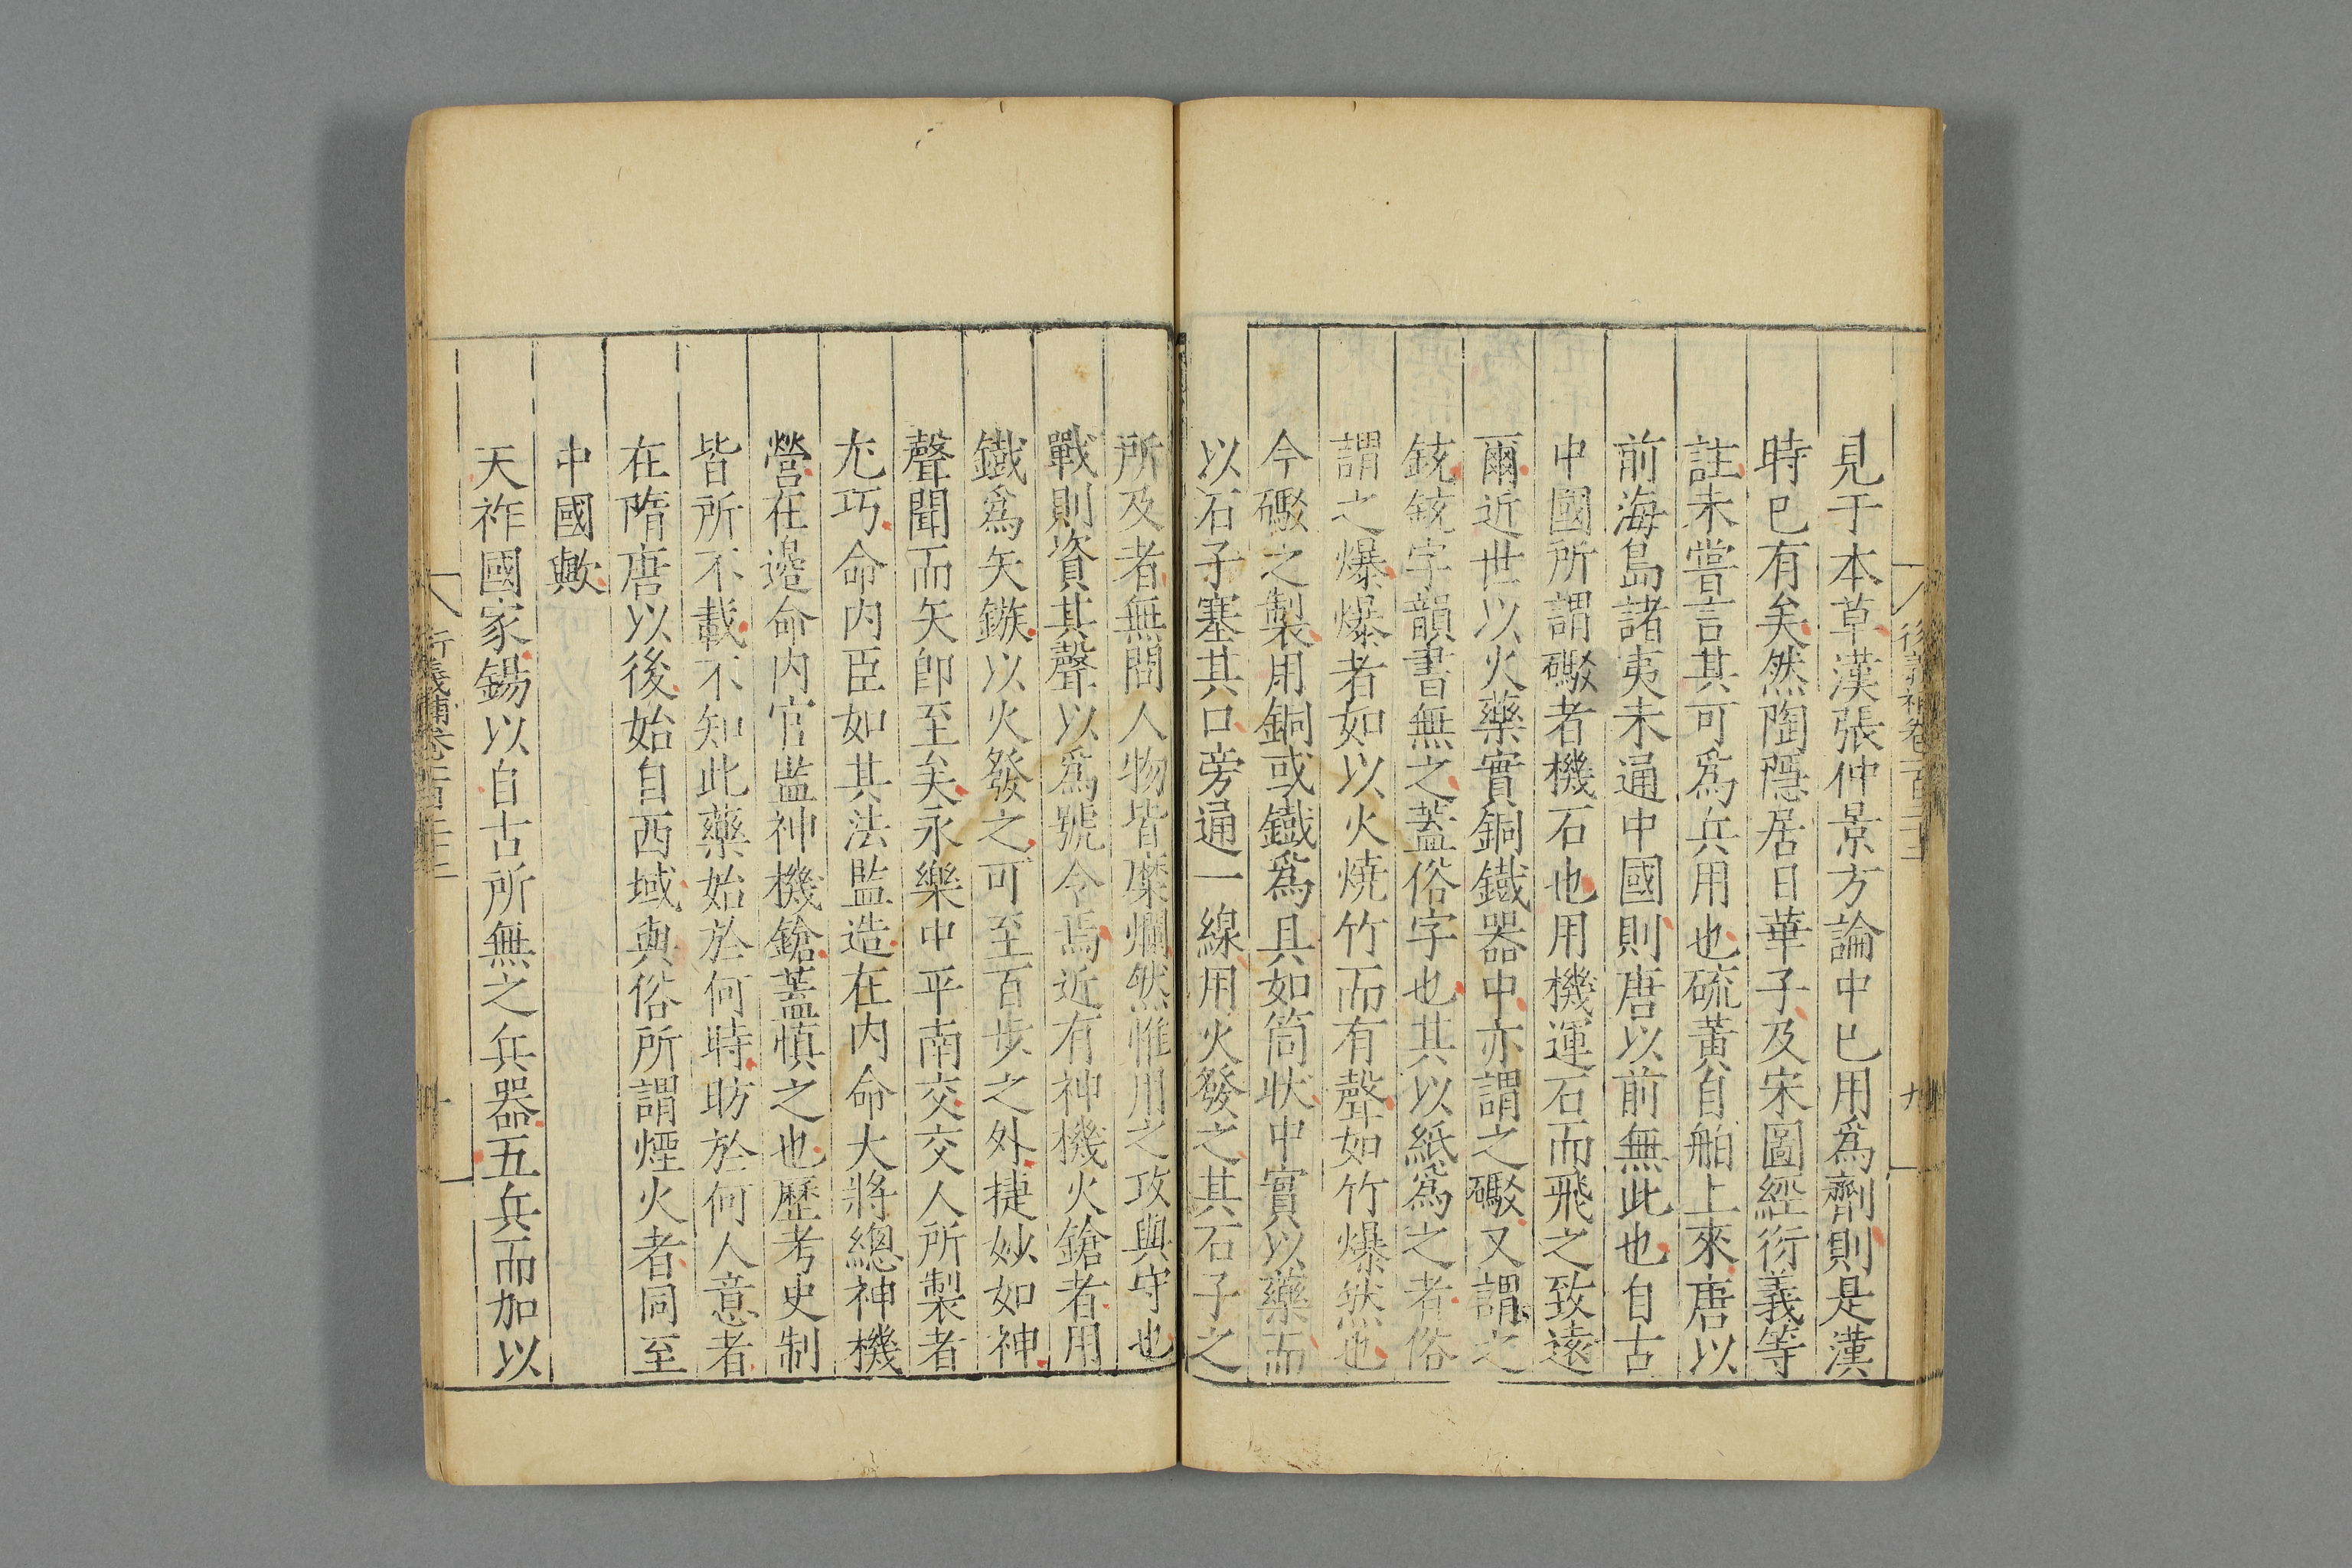 見于本草漢張仲景方論中已用為劑則是漢
時已有矣然陶隱居日華子及宋圖經衍義等
註未嘗言其可為兵用也硫黃自舶上來唐以
前海島諸夷未通中國則唐以前無此也自古
中國所謂礟者機石也用機運石而飛之致遠
爾近世以火藥實銅鐵器中亦謂之礟又謂之
銃銃字韻書無之蓋俗字也其以紙為之者俗
謂之爆爆者如以火燒竹而有聲如竹爆然也
今礟之製用銅或鐵為具如筒狀中實以藥而
以石子塞其口旁通一線用火發之其石子之
所及者無問人物皆糜爛然惟用之攻與守也
戰則資其聲以為號令焉近有神機火鎗者用
鐵為矢鏃以火發之可至百步之外捷妙如神
聲聞而矢即至矣永樂中平南交交人所製者
尤巧命内臣如其法監造在内命大將總神機
營在邊命内官監神機鎗蓋慎之也歷考史制
皆所不載不知此藥始於何時昉於何人意者
在隋唐以後始自西域與俗所謂煙火者同至
中國歟
天祚國家錫以自古所無之兵器五兵而加以